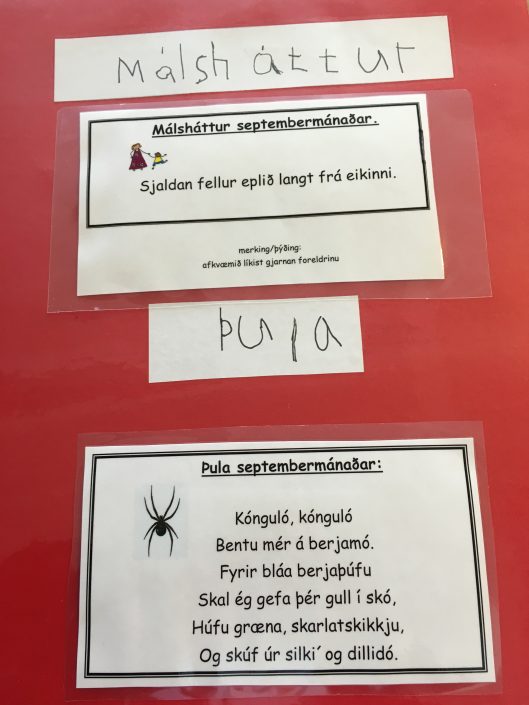 Málsháttur
Málsháttur septembermánaðar.
Sjaldan fellur eplið langt frá eikinni.
merking/þýðing:
afkvæmið líkist gjarnan foreldrinu
Þula
Þula septembermánaðar:
Kónguló, kónguló
Bentu mér á berjamó.
Fyrir bláa berjaþúfu
Skal ég gefa þér gull í skó,
Húfu græna, skarlatskikkju,
Og skúf úr silki´ og dillidó.